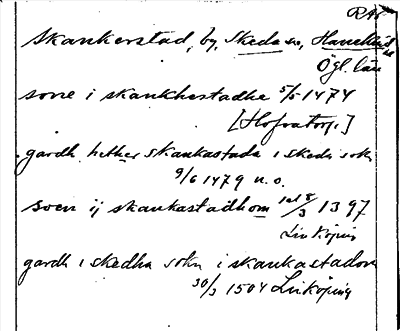 RAp
Skankerstad, by, Skeda sn, Hanekind
Ögl. län
sone i skankhestadhe 5/5 1474
[Hofvatorp.]
gardh hether skankastada i skeda sokn
9/6 1479 n.o.
soen ij skankastadhom 1/3 1397
Linköping
gardh i skedha sokn i skankastadom
30/3 1504 Linköping